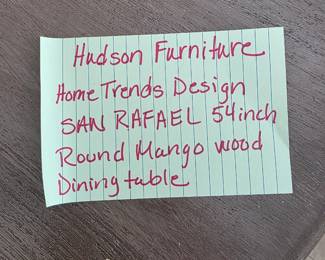 Hudson Furniture
Home Trends Design
SAN RAFAEL 54inch
Round Mango wood
Dining table